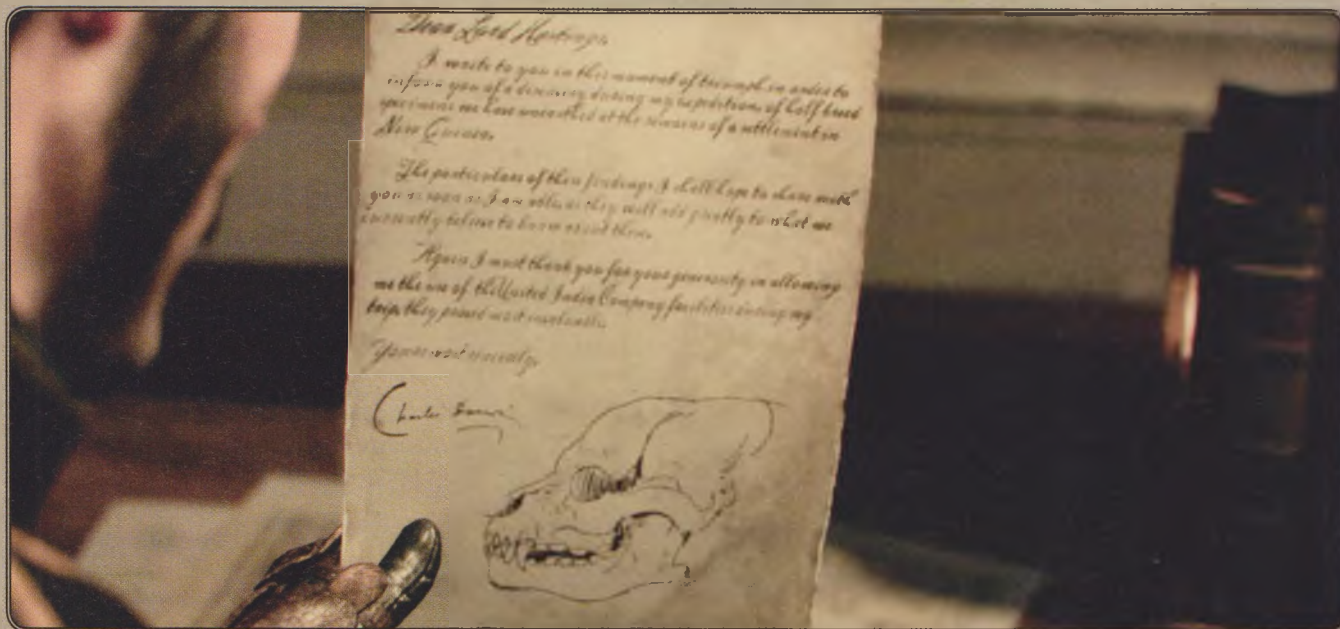 Dear Lord Hastings,
I wrote to you in this moment of triumph in order to
inform you of a discovery during my expeditions of half breed
specimens we have unearthed at the remains of a settlement in
New Guinea.
The particulars of these findings I shall hope to share with
you as soon as I am able, as they will add greatly to what we
currently believe to know about them.
Again I must thank you for your generosity in allowing
me the use of the United India Company facilities during my
trip, they proved most
Yours most sincerely,
Charles Darwin